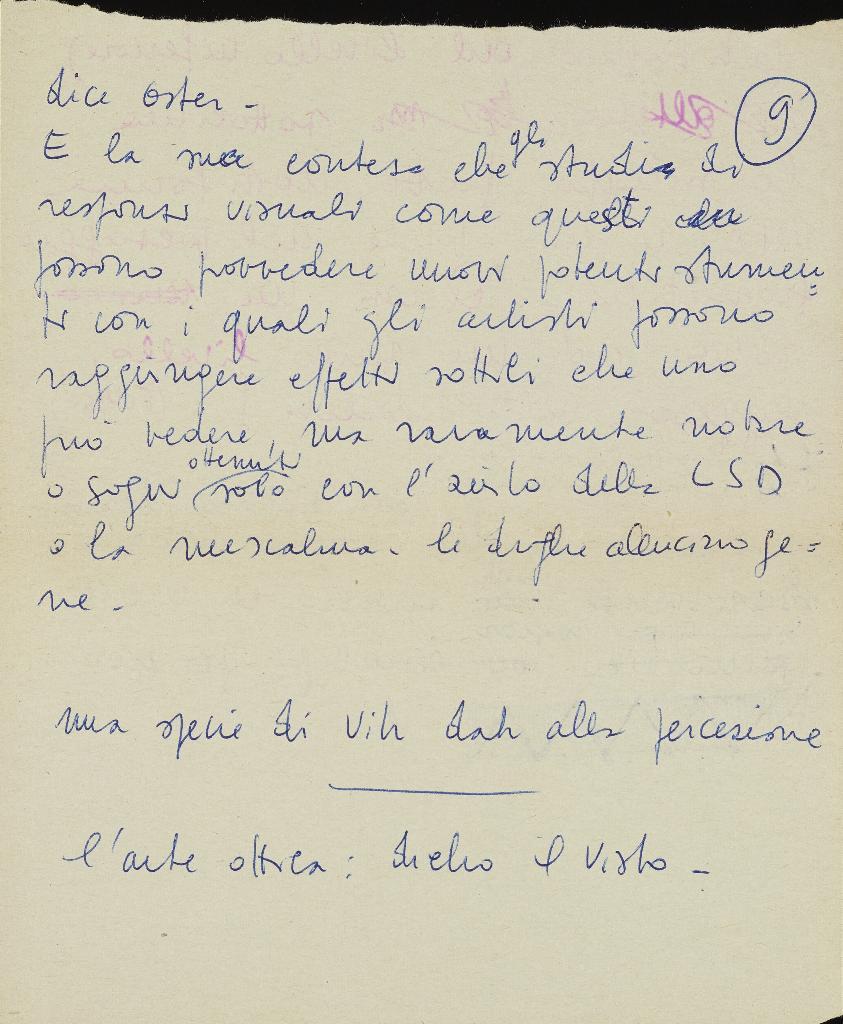 dice Oster -
9
E la sua contesa che gli studi di
responsi visuali come questi
possono provvedere nuovi potenti strumen=
ti con i quali gli artisti possono
raggiungere effetti sottili che uno
può vedere, ma raramente notare
o sogni ottenuti solo con l'aiuto della LSD
o la mescalina - le droghe allucinoge=
ne -
una specie di dah alla percezione
l'arte ottica: dietro il visto -